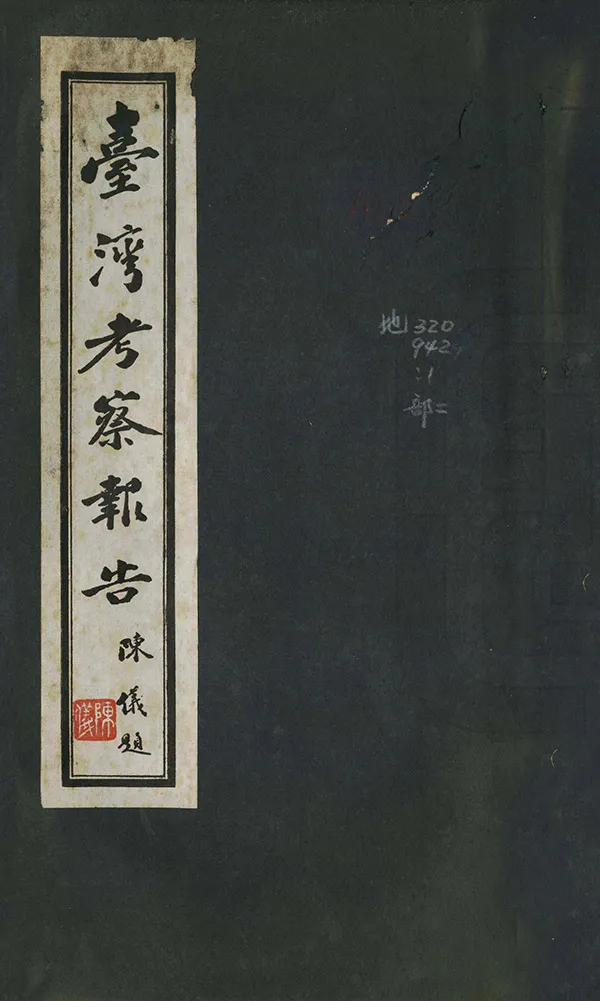 臺灣考察報告
陳儀題
陳儀
地 320
942
:1
部二